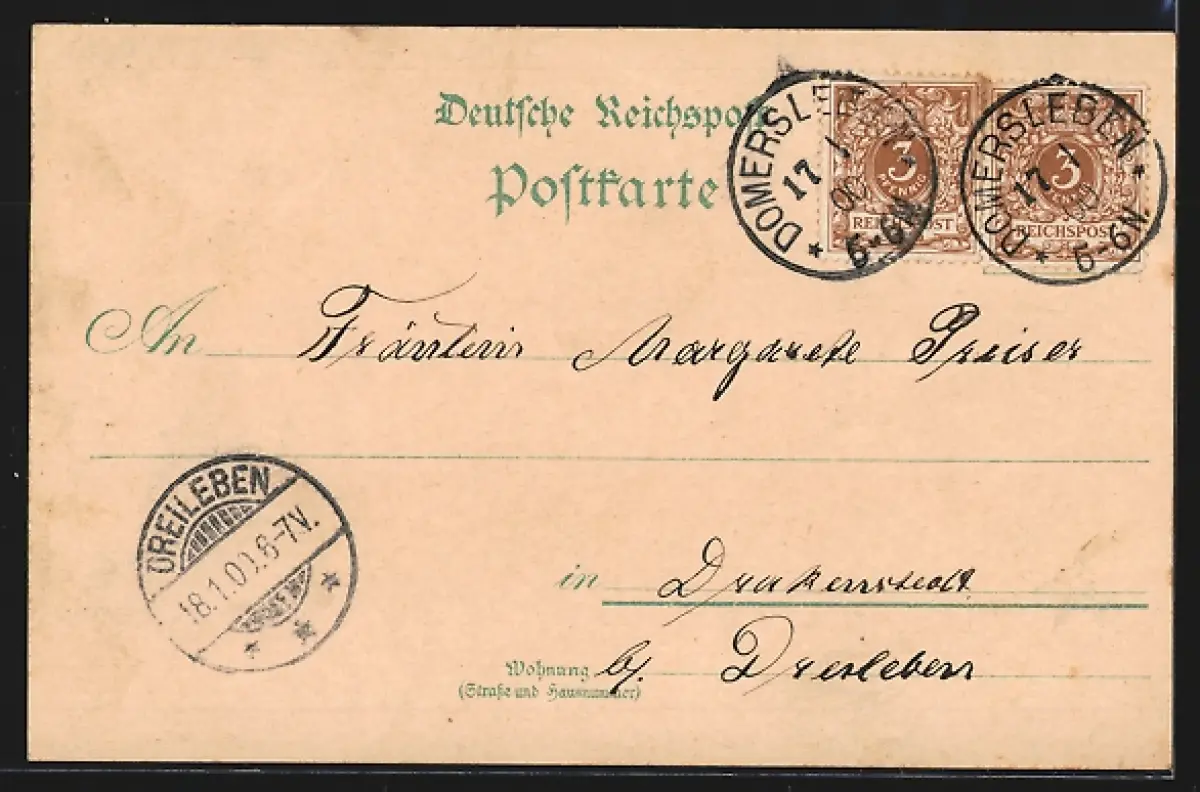 Deutsche Reichspost
Postkarte
DOMERSLEBEN
17 1
00
5-6N.
3
PFENNIG
REICHSPOST
DOMERSLEBEN
17 1
00
5-6N.
3
PFENNIG
REICHSPOST
An Fräulein Margarete Preiser
DREILEBEN
18.1.00.6-7V.
in Drakenstedt
Wohnung b/. Dreileben
(Straße und Hausnummer)